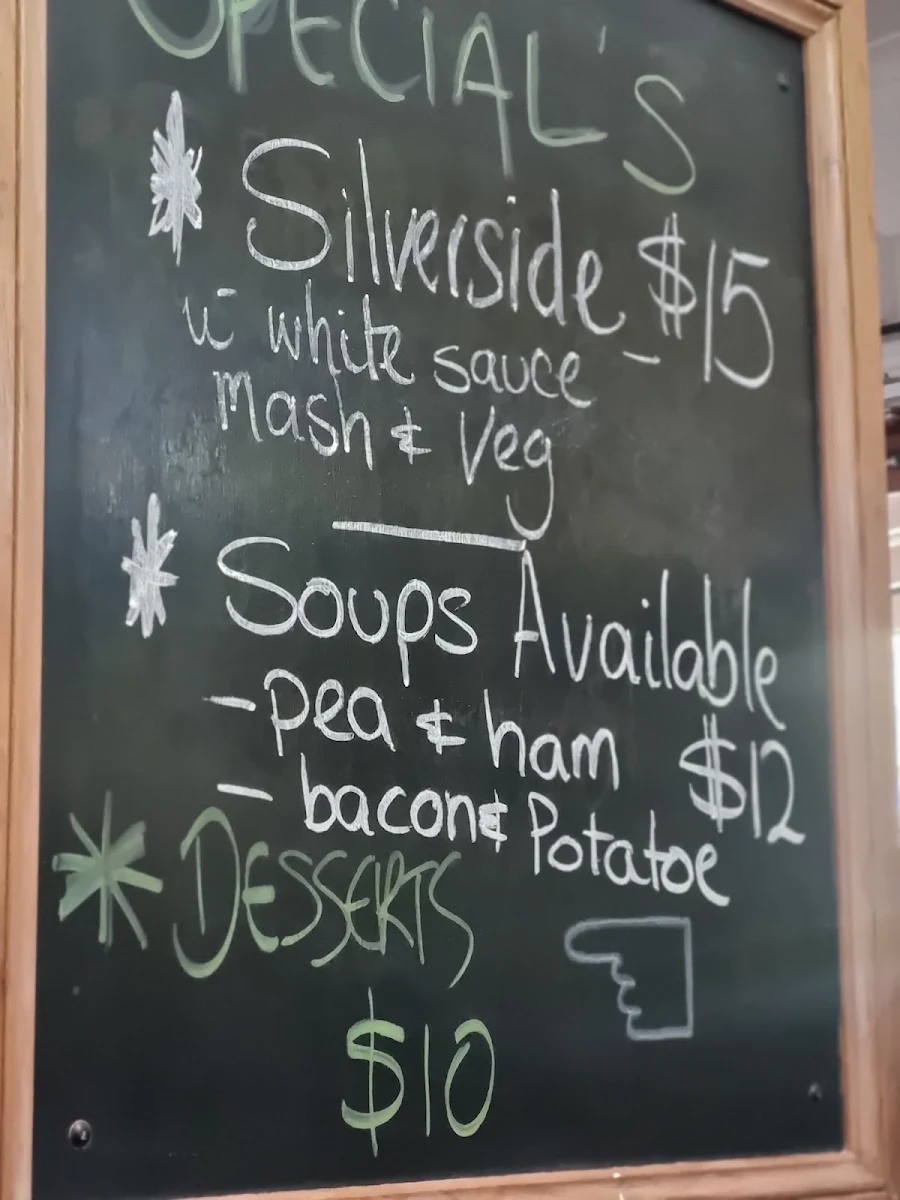 SPECIAL'S
* Silverside $15
w̄ white sauce -
Mash & Veg
* Soups Available
- pea & ham $12
- bacon & Potatoe
* DESSERTS
$10